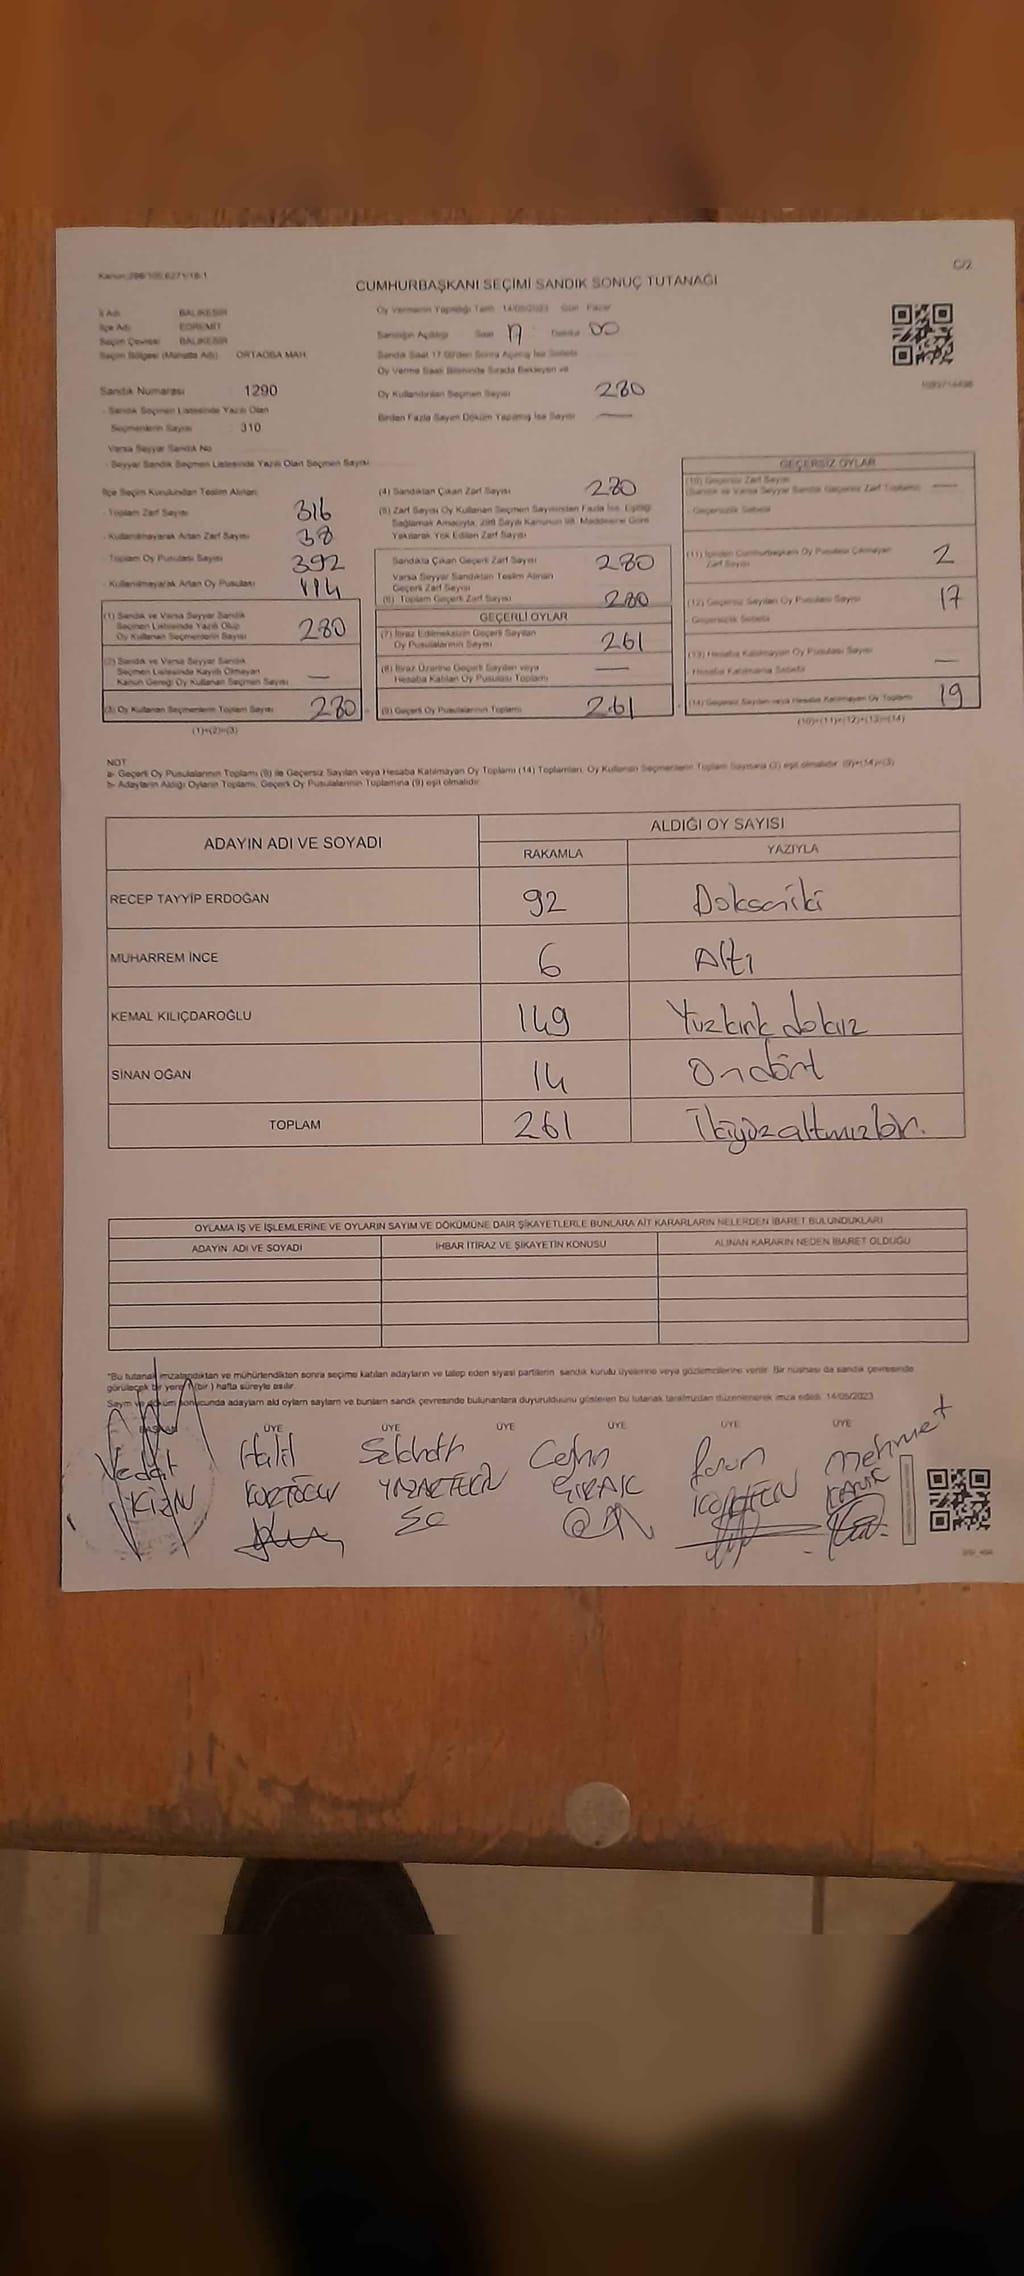 Kanun:298/105,6271/18-1
C/2
CUMHURBAŞKANI SEÇİMİ SANDIK SONUÇ TUTANAĞI
İl Adı BALIKESİR
İlçe Adı EDREMİT
Seçim Çevresi BALIKESİR
Seçim Bölgesi (Muhtarlık Adı) ORTAOBA MAH.
Oy Vermenin Yapıldığı Tarih 14/05/2023 Gün Pazar
Sandığın Açıldığı Saat 17 Dakika 00
Sandık Saat 17.00'den Sonra Açılmış İse Sebebi
Oy Verme Saati Bitiminde Sırada Bekleyen ve
Oy Kullandırılan Seçmen Sayısı 280
Birden Fazla Sayım Döküm Yapılmış İse Sayısı —
Sandık Numarası 1290
- Sandık Seçmen Listesinde Yazılı Olan
Seçmenlerin Sayısı : 310
Varsa Seyyar Sandık No
- Seyyar Sandık Seçmen Listesinde Yazılı Olan Seçmen Sayısı
İlçe Seçim Kurulundan Teslim Alınan:
- Toplam Zarf Sayısı 316
- Kullanılmayarak Artan Zarf Sayısı 38
- Toplam Oy Pusulası Sayısı 392
- Kullanılmayarak Artan Oy Pusulası 114
(1) Sandık ve Varsa Seyyar Sandık
Seçmen Listesinde Yazılı Olup
Oy Kullanan Seçmenlerin Sayısı 280
(2) Sandık ve Varsa Seyyar Sandık
Seçmen Listesinde Kayıtlı Olmayan
Kanun Gereği Oy Kullanan Seçmen Sayısı —
(3) Oy Kullanan Seçmenlerin Toplam Sayısı 280
(1)+(2)=(3)
(4) Sandıktan Çıkan Zarf Sayısı 280
(5) Zarf Sayısı Oy Kullanan Seçmen Sayısından Fazla İse, Eşitliği
Sağlamak Amacıyla, 298 Sayılı Kanunun 98. Maddesine Göre
Yakılarak Yok Edilen Zarf Sayısı
Sandıkta Çıkan Geçerli Zarf Sayısı 280
Varsa Seyyar Sandıktan Teslim Alınan
Geçerli Zarf Sayısı
(6) Toplam Geçerli Zarf Sayısı 280
GEÇERLİ OYLAR
(7) İtiraz Edilmeksizin Geçerli Sayılan
Oy Pusulalarının Sayısı 261
(8) İtiraz Üzerine Geçerli Sayılan veya
Hesaba Katılan Oy Pusulası Toplamı —
(9) Geçerli Oy Pusulalarının Toplamı 261
GEÇERSİZ OYLAR
(10) Geçersiz Zarf Sayısı
(Sandık ve Varsa Seyyar Sandık Geçersiz Zarf Toplamı) —
- Geçersizlik Sebebi
(11) İçinden Cumhurbaşkanı Oy Pusulası Çıkmayan
Zarf Sayısı 2
(12) Geçersiz Sayılan Oy Pusulası Sayısı 17
- Geçersizlik Sebebi
(13) Hesaba Katılmayan Oy Pusulası Sayısı —
- Hesaba Katılmama Sebebi
(14) Geçersiz Sayılan veya Hesaba Katılmayan Oy Toplamı 19
(10)+(11)+(12)+(13)=(14)
NOT
a- Geçerli Oy Pusulalarının Toplamı (9) ile Geçersiz Sayılan veya Hesaba Katılmayan Oy Toplamı (14) Toplamları, Oy Kullanan Seçmenlerin Toplam Sayısına (3) eşit olmalıdır. (9)+(14)=(3)
b- Adayların Aldığı Oyların Toplamı, Geçerli Oy Pusulalarının Toplamına (9) eşit olmalıdır.
ADAYIN ADI VE SOYADI ALDIĞI OY SAYISI
RAKAMLA YAZIYLA
RECEP TAYYİP ERDOĞAN 92 Doksaniki
MUHARREM İNCE 6 Altı
KEMAL KILIÇDAROĞLU 149 Yüzkırk dokuz
SİNAN OĞAN 14 Ondört
TOPLAM 261 İkiyüzaltmışbir.
OYLAMA İŞ VE İŞLEMLERİNE VE OYLARIN SAYIM VE DÖKÜMÜNE DAİR ŞİKAYETLERLE BUNLARA AİT KARARLARIN NELERDEN İBARET BULUNDUKLARI
ADAYIN ADI VE SOYADI İHBAR İTİRAZ VE ŞİKAYETİN KONUSU ALINAN KARARIN NEDEN İBARET OLDUĞU
*Bu tutanak imzalandıktan ve mühürlendikten sonra seçime katılan adayların ve talep eden siyasi partilerin sandık kurulu üyelerine veya gözlemcilerine verilir. Bir nüshası da sandık çevresinde
görülecek bir yere 1 (bir) hafta süreyle asılır.
Sayım ve döküm sonucunda adayların aldığı oyların sayıların ve bunların sandık çevresinde bulunanlara duyurulduğunu gösteren bu tutanak tarafımızdan düzenlenerek imza edildi. 14/05/2023
BAŞKAN ÜYE ÜYE ÜYE ÜYE ÜYE
Vedat Halil Mehmet